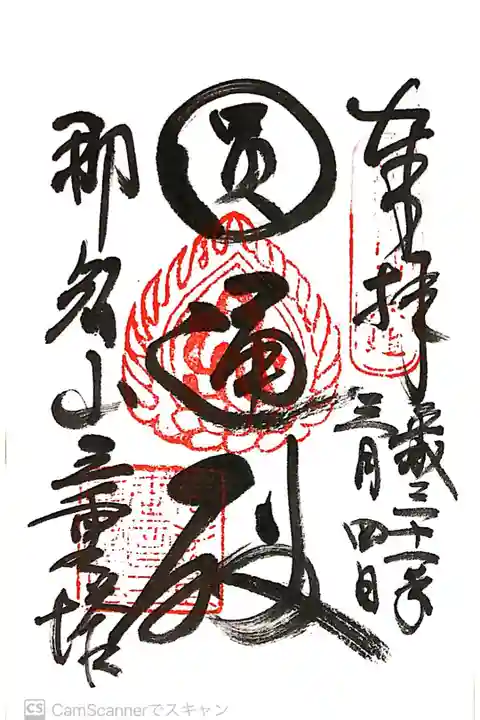 奉拝
平成三十一年
三月四日
圓通殿
那名山三重塔
CS CamScannerでスキャン